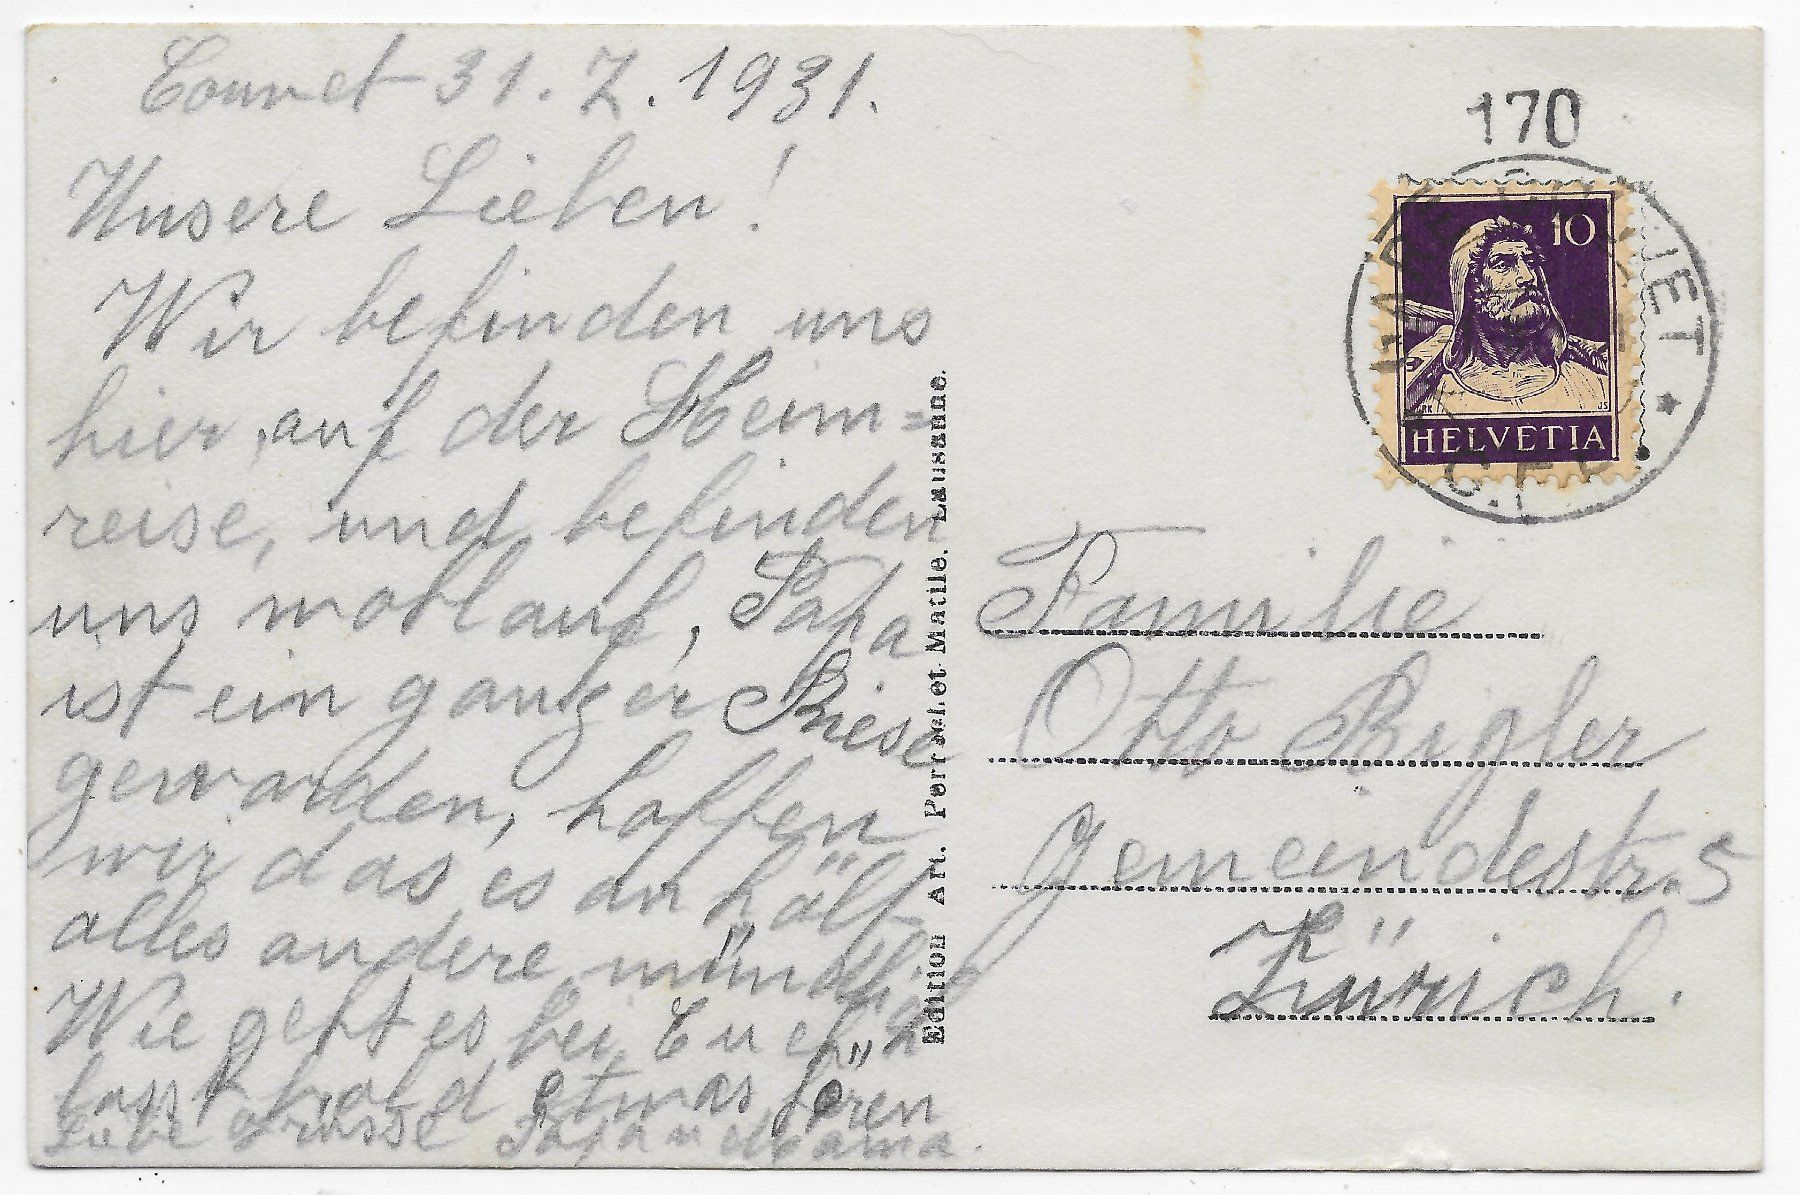 Couvet 31. 7. 1931.
Unsere Lieben!
Wir befinden uns
hier, auf der Heim=
reise, und befinden
uns wohlauf, Papa
ist ein ganzer Riese
geworden, hoffen
wir das es an hält
alles andere mündlich
Wie geht es bei Euch
lasst bald etwas hören
Liebe Grüsse Papa u Mama.
Edition Art. Perrochet-Matile. Lausanne.
170
10
HELVETIA
Familie
Otto Bigler
Gemeindestr. 5
Zürich.